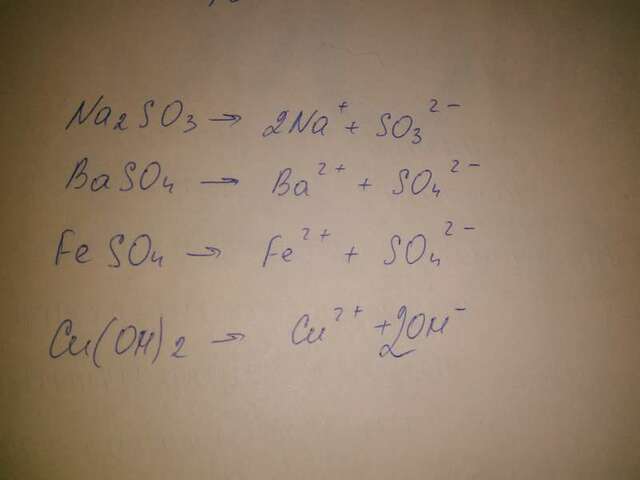 Na₂SO₃ → 2Na⁺ + SO₃²⁻
BaSO₄ → Ba²⁺ + SO₄²⁻
FeSO₄ → Fe²⁺ + SO₄²⁻
Cu(OH)₂ → Cu²⁺ + 2OH⁻